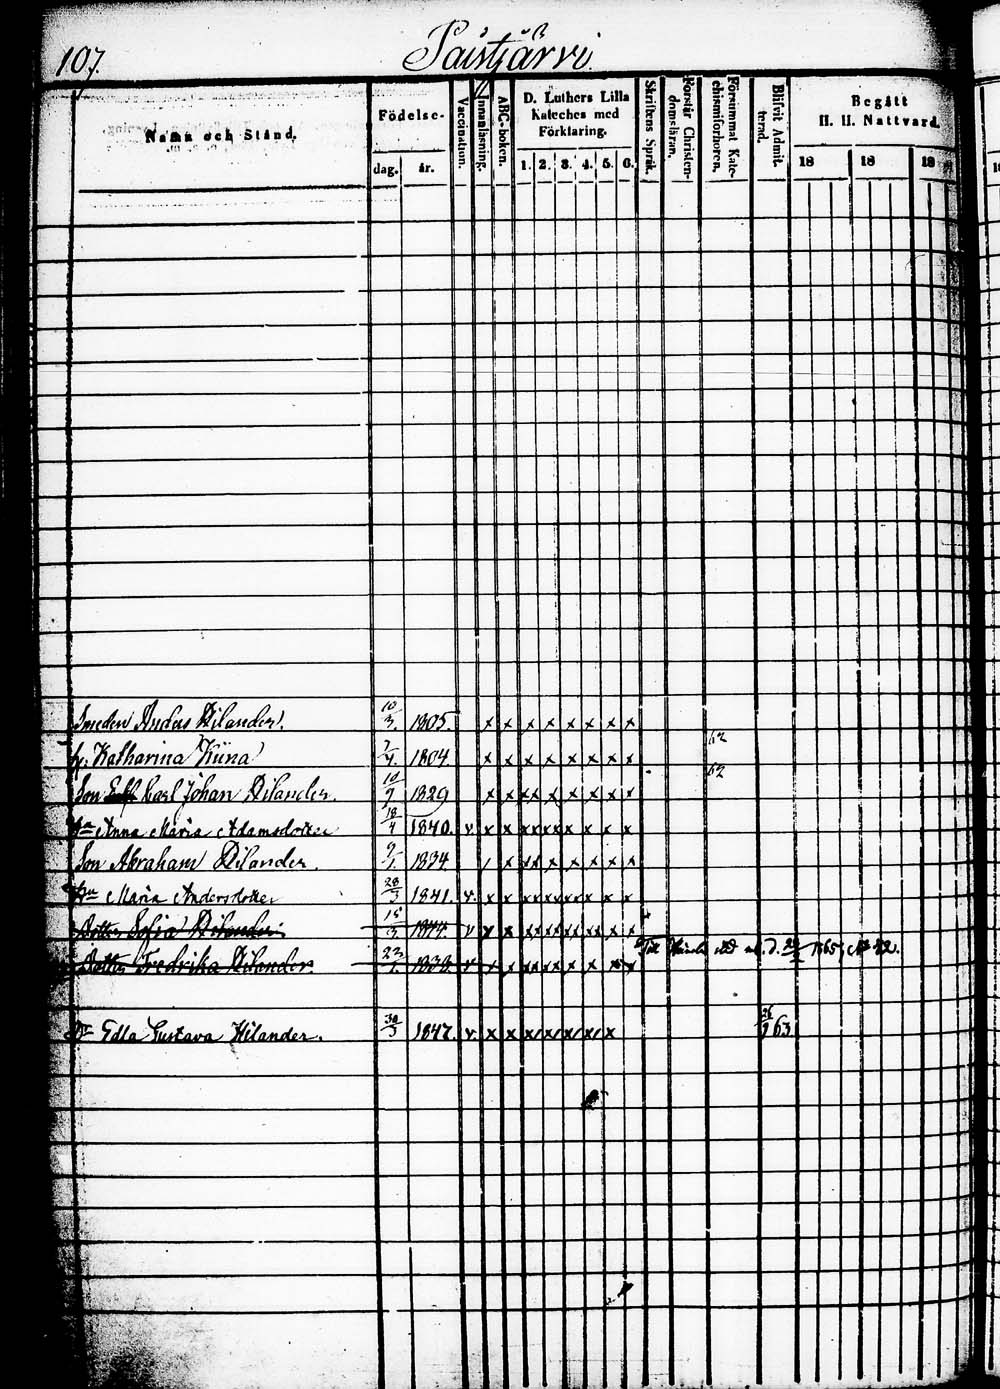 107.
Paistjärvi
Namn och Stånd.
Födelse-
dag. år.
Vaccination.
Innanläsning.
ABC-boken.
D. Luthers Lilla
Kateches med
Förklaring.
1. 2. 3. 4. 5. 6.
Skriftens Språk.
Förstår Christen-
domsläran.
Försummat Kate-
chismiförhören.
Blifvit Admit-
terad.
Begått
H. H. Nattvard.
18 18 18
Smeden Anders Dilander. 10/3. 1805. x x x x x x x x
h. Katharina Kiina 7/4. 1804. x x x x x x x x 62
Son Carl Johan Dilander. 10/9 1829 x x xx x x x x x 62
Anna Maria Adamsdotter 18/4 1840. v. x x xx xx x x x x
Son Abraham Dilander. 9/1. 1834 / x xx x x x x x
Maria Andersdotter 28/3 1841. v. x x xx xx x x x x
Dotter Sofia Dilander 15/3 1844. v x x xx xx xx xx x x
Till 1865,
Dotter Fredrika Dilander. 23/1. 1838. v x x x x x x x x
Edla Gustava Hilander. 30/3 1847. v. x x x/ x/ x/ x/ x 26/9 63